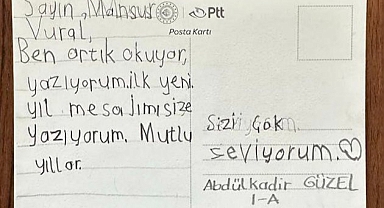 Sayın, Mansur
Vural,
Ben artık okuyor,
yazıyorum.ilk yeni
yıl mesajımı size
yazıyorum. Mutlu
yıllar.
Ptt
Posta Kartı
Sizi Çok
seviyorum.
Abdülkadir GÜZEL
1-A